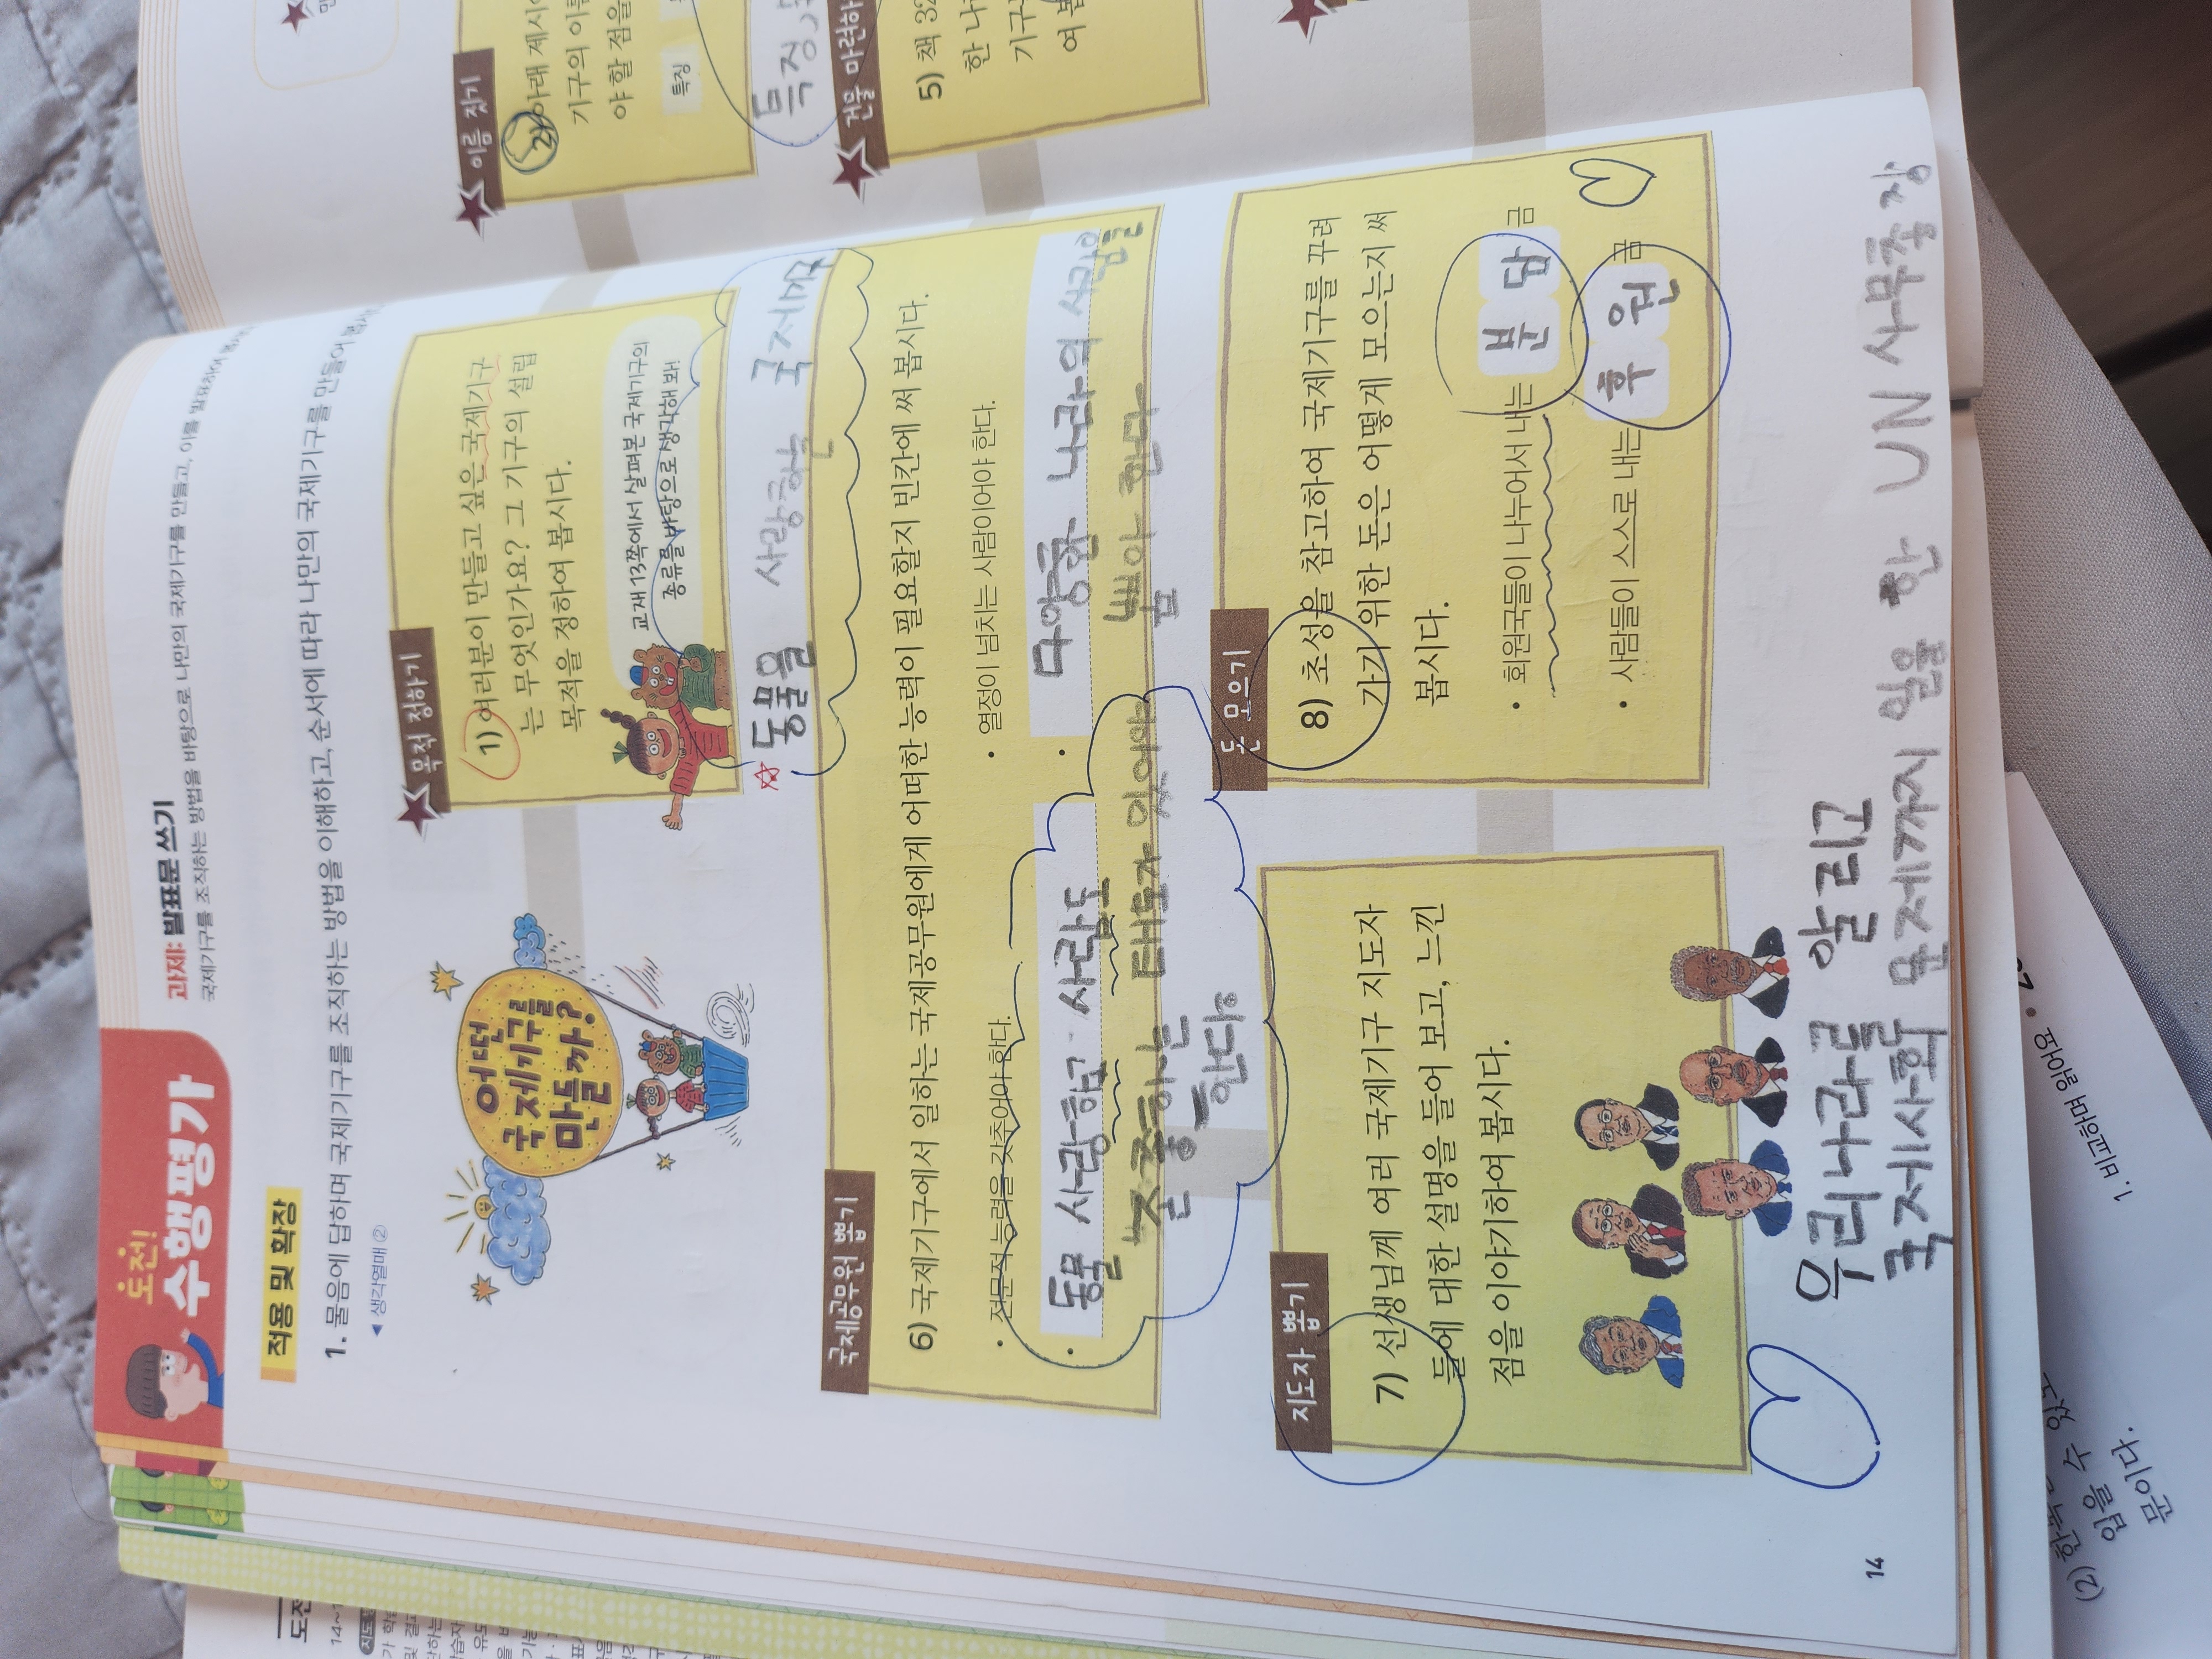 도전!
수행평가
과제: 발표문 쓰기
국제기구를 조직하는 방법을 바탕으로 나만의 국제기구를 만들고, 이를 발표하여
적용 및 확장
1. 물음에 답하며 국제기구를 조직하는 방법을 이해하고, 순서에 따라 나만의 국제기구를 만들어
◀ 생각열매 ②
어떤
국제기구를
만들까?
목적 정하기
1) 여러분이 만들고 싶은 국제기구
는 무엇인가요? 그 기구의 설립
목적을 정하여 봅시다.
교재 13쪽에서 살펴본 국제기구의
종류를 바탕으로 생각해 봐!
동물을 사랑하는 국제기구
국제공무원 뽑기
6) 국제기구에서 일하는 국제공무원에게 어떠한 능력이 필요할지 빈칸에 써 봅시다.
• 전문적 능력을 갖추어야 한다.
• 열정이 넘치는 사람이어야 한다.
• 동물 사랑하고 사람도
존중하는 태도가 있어야
한다.
• 다양한 나라의 사람을
뽑아야 한다
지도자 뽑기
7) 선생님께 여러 국제기구 지도자
들에 대한 설명을 들어 보고, 느낀
점을 이야기하여 봅시다.
돈 모으기
8) 초성을 참고하여 국제기구를 꾸려
가기 위한 돈은 어떻게 모으는지 써
봅시다.
• 회원국들이 나누어서 내는 분담금
• 사람들이 스스로 내는 후원금
우리나라를 알리고
국제사회 문제까지 일을 한 UN 사무총장
14
이름 짓기
2) 아래 제시
기구의 이름
야 할 점을
특징
특징,
건물 마련하
5) 책 32
한 나
기구
여 봅
1. 비교하며 읽어요
(2)
있을 수 있
문이다.
도전
14~1